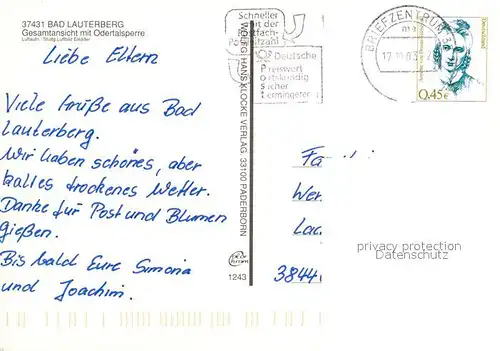 37431 BAD LAUTERBERG
Gesamtansicht mit Odertalsperre
Liebe Eltern
Viele Grüße aus Bad
Lauterberg.
Wir haben schönes, aber
kaltes trockenes Wetter.
Danke für Post und Blumen
gießen.
Bis bald Eure Simona
und Joachim.
HANS KLOCKE VERLAG 33100 PADERBORN
1243
Schneller
mit der
Postfach-
Postleitzahl
Deutsche
Preiswert
Ortskundig
Sicher
Termingerecht
BRIEFZENTRUM
Deutschland
0,45€
Fa
Wer
privacy protection
Datenschutz
3844